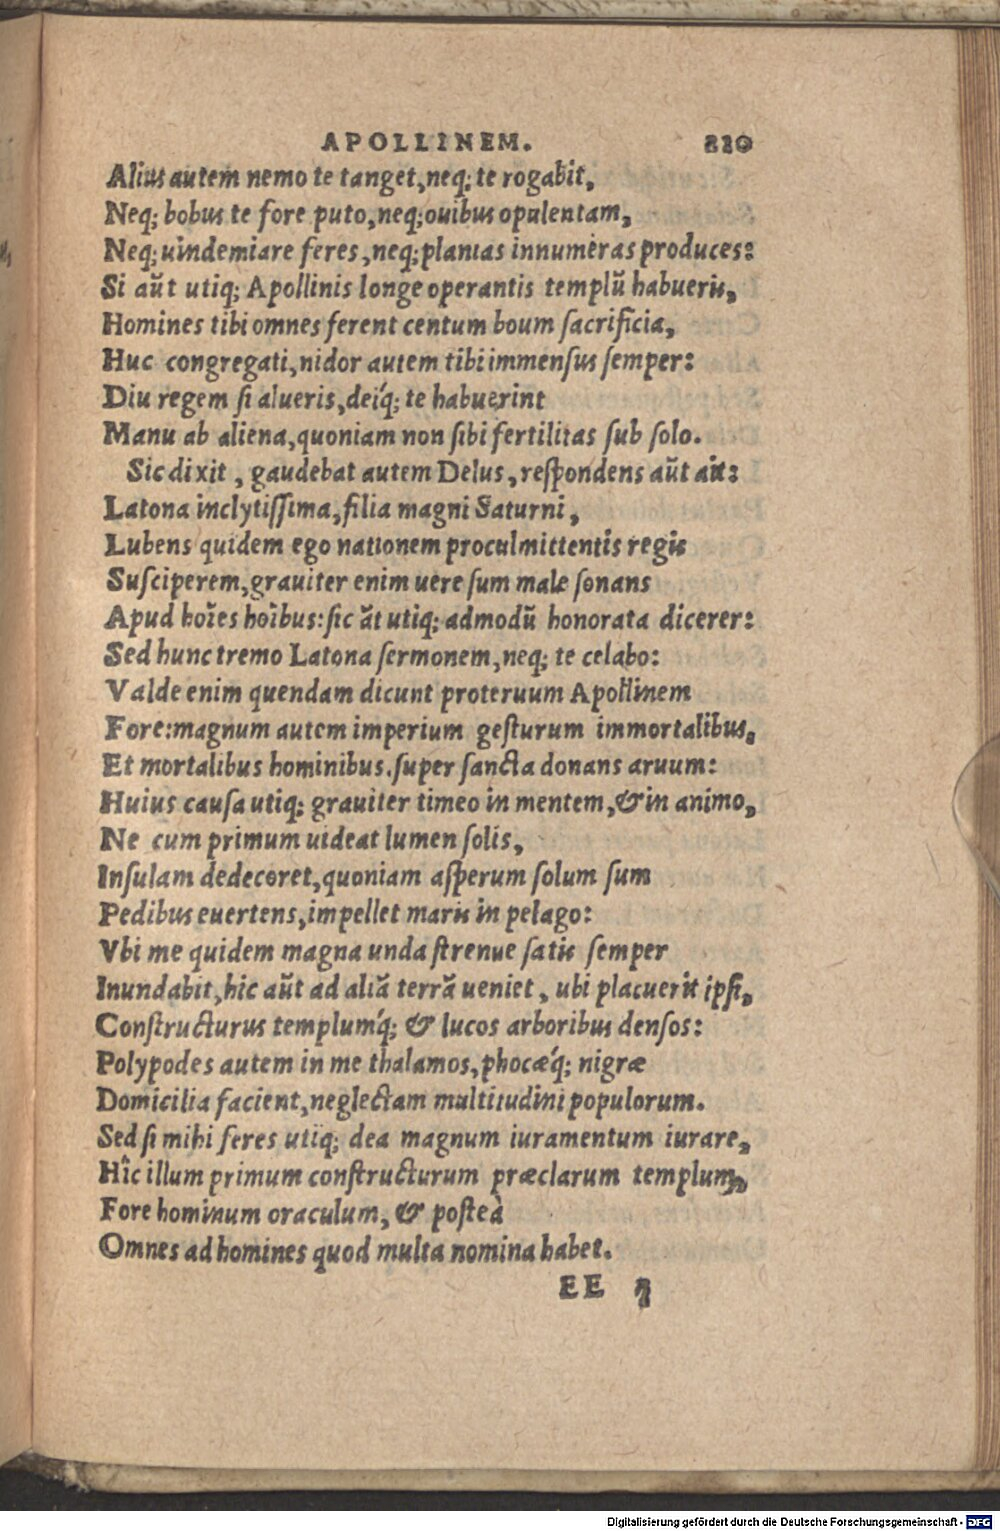 APOLLINEM. 220
Alius autem nemo te tanget, neq; te rogabit,
Neq; bobus te fore puto, neq; ouibus opulentam,
Neq; uindemiare feres, neq; plantas innumeras produces:
Si aũt utiq; Apollinis longe operantis templũ habueris,
Homines tibi omnes ferent centum boum sacrificia,
Huc congregati, nidor autem tibi immensus semper:
Diu regem si alueris, deiq́; te habuerint
Manu ab aliena, quoniam non sibi fertilitas sub solo.
Sic dixit, gaudebat autem Delus, respondens aũt ait:
Latona inclytissima, filia magni Saturni,
Lubens quidem ego nationem proculmittentis regis
Susciperem, grauiter enim uere sum male sonans
Apud hoĩes hoĩbus: sic ãt utiq; admodũ honorata dicerer:
Sed hunc tremo Latona sermonem, neq; te celabo:
Valde enim quendam dicunt proteruum Apollinem
Fore: magnum autem imperium gesturum immortalibus,
Et mortalibus hominibus. super sancta donans aruum:
Huius causa utiq; grauiter timeo in mentem, & in animo,
Ne cum primum uideat lumen solis,
Insulam dedecoret, quoniam asperum solum sum
Pedibus euertens, impellet maris in pelago:
Vbi me quidem magna unda strenue satis semper
Inundabit, hic aũt ad aliã terrã ueniet, ubi placuerit ipsi,
Constructurus templumq́; & lucos arboribus densos:
Polypodes autem in me thalamos, phocæq́; nigræ
Domicilia facient, neglectam multitudini populorum.
Sed si mihi feres utiq; dea magnum iuramentum iurare,
Hîc illum primum constructurum præclarum templum,
Fore hominum oraculum, & posteà
Omnes ad homines quod multa nomina habet.
EE
Digitalisierung gefördert durch die Deutsche Forschungsgemeinschaft - DFG